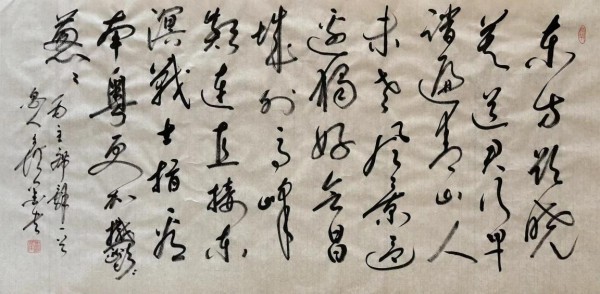 东方欲晓
莫道君行早
踏遍青山人
未老风景这
边独好会昌
城外高峰
颠连直接东
溟战士指看
南粤更加鬱〻
葱〻
毛主席词一首